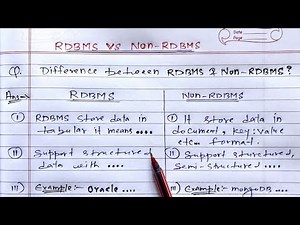 Date
Page
RDBMS VS Non-RDBMS
Q. Difference between RDBMS & Non-RDBMS?
Ans:- RDBMS
Non-RDBMS
(I) RDBMS store data in
tabular it means ....
(I) It store data in
document, key:value
etc.. format.
(II) Support structured
data with ....
(II) Support structured,
Semi-structured ....
(III) Example:- Oracle ....
(III) Example:- mongoDB ...